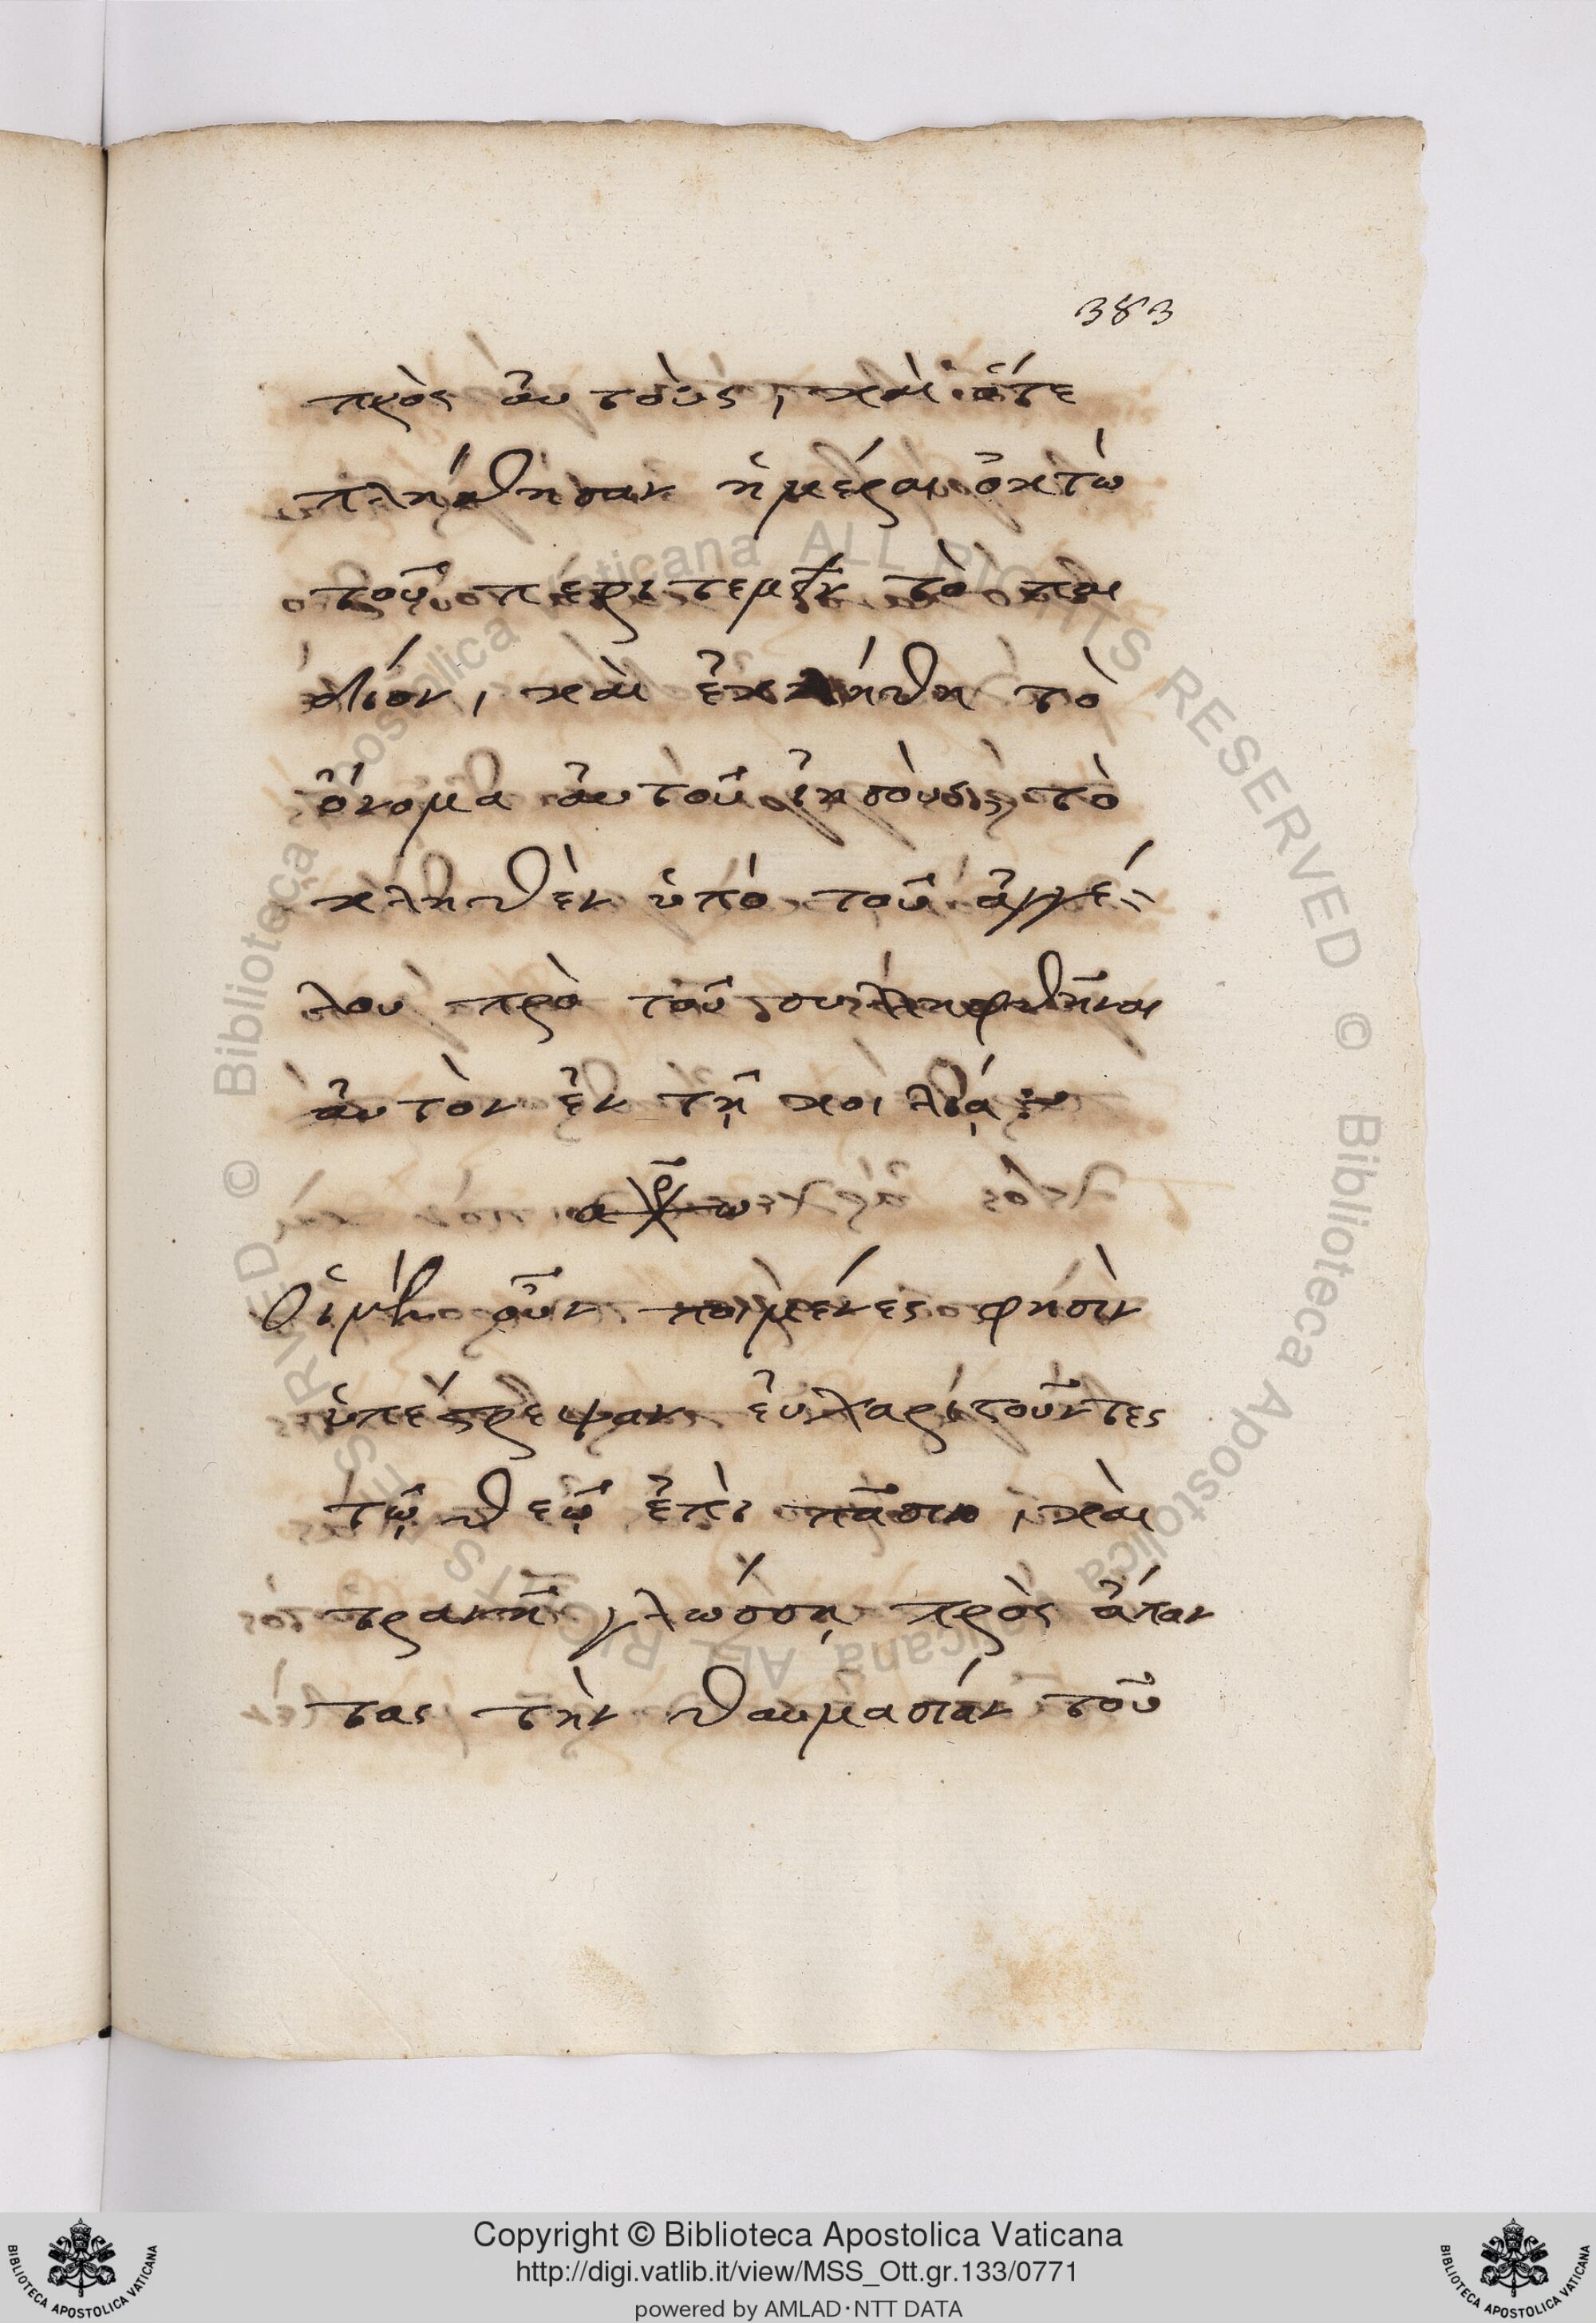 383
πρὸς αὐτοὺς, καὶ ὅτε
πλήσθησαν ἡμέραι ὀκτὼ
τοῦ περιτεμεῖν τὸ παι
δίον, καὶ ἐκλήθη τὸ
ὄνομα αὐτοῦ ἰησοὺς τὸ
κληθὲν ὑπὸ τοῦ ἀγγέ-
λου πρὸ τοῦ συλληφθῆναι
αὐτὸν ἐν τῇ κοιλίᾳ
Οἱ μὲν οὖν ποιμένες φησὶν
ὑπέστρεψαν εὐχαριστοῦντες
τῷ θεῷ ἐπὶ πᾶσιν, καὶ
τρανῇ γλώσσῃ πρὸς ἅπαν
τας τὴν θαυμασίαν τοῦ
© Biblioteca Apostolica Vaticana ALL RIGHTS RESERVED
© Biblioteca Apostolica Vaticana ALL RIGHTS RESERVED
Copyright © Biblioteca Apostolica Vaticana
http://digi.vatlib.it/view/MSS_Ott.gr.133/0771
powered by AMLAD·NTT DATA
BIBLIOTECA APOSTOLICA VATICANA
BIBLIOTECA APOSTOLICA VATICANA